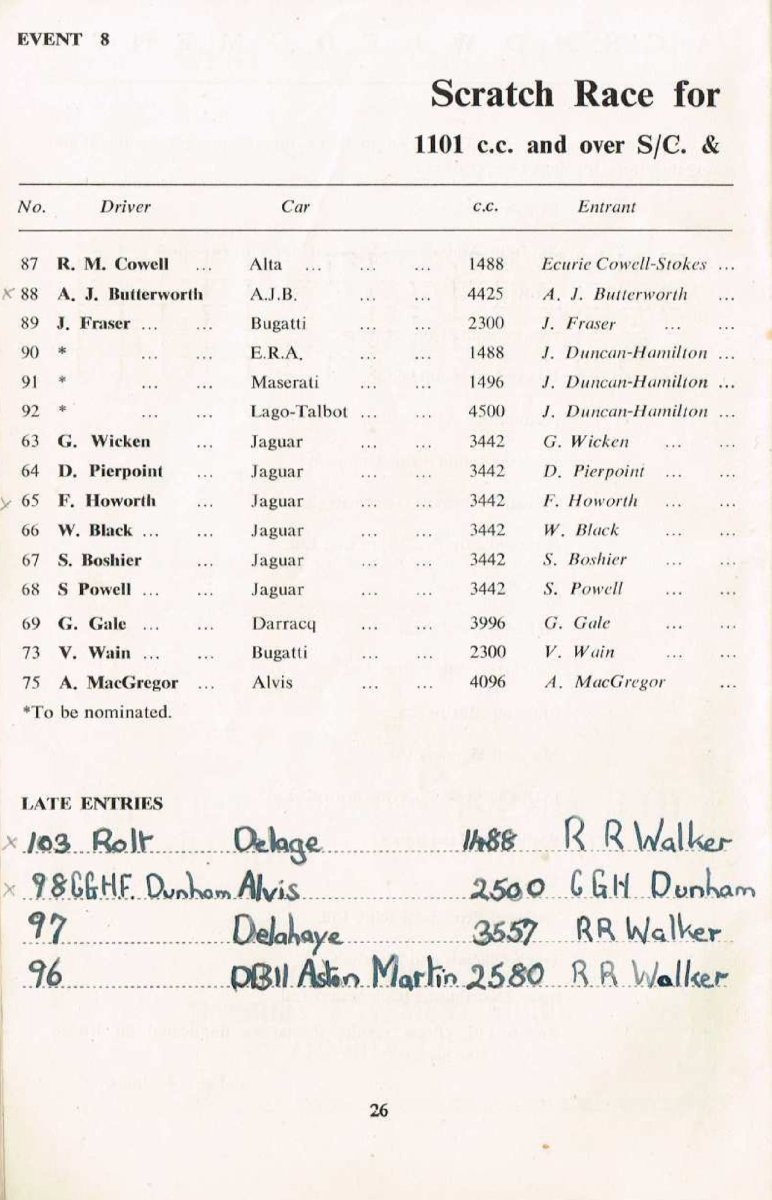 EVENT 8
Scratch Race for
1101 c.c. and over S/C. &
No. Driver Car c.c. Entrant
87 R. M. Cowell ... Alta ... ... ... 1488 Ecurie Cowell-Stokes ...
x 88 A. J. Butterworth A.J.B. ... ... 4425 A. J. Butterworth ...
89 J. Fraser ... ... Bugatti ... ... 2300 J. Fraser ... ...
90 * ... ... E.R.A. ... ... 1488 J. Duncan-Hamilton ...
91 * ... ... Maserati ... ... 1496 J. Duncan-Hamilton ...
92 * ... ... Lago-Talbot ... ... 4500 J. Duncan-Hamilton ...
63 G. Wicken ... Jaguar ... ... 3442 G. Wicken ... ...
64 D. Pierpoint ... Jaguar ... ... 3442 D. Pierpoint ... ...
x 65 F. Howorth ... Jaguar ... ... 3442 F. Howorth ... ...
66 W. Black ... ... Jaguar ... ... 3442 W. Black ... ...
67 S. Boshier ... Jaguar ... ... 3442 S. Boshier ... ...
68 S Powell ... ... Jaguar ... ... 3442 S. Powell ... ...
69 G. Gale ... ... Darracq ... ... 3996 G. Gale ... ...
73 V. Wain ... ... Bugatti ... ... 2300 V. Wain ... ...
75 A. MacGregor ... Alvis ... ... 4096 A. MacGregor ...
*To be nominated.
LATE ENTRIES
x 103 Rolt Delage 1488 R R Walker
x 98 GGHF. Dunham Alvis 2500 GGH Dunham
97 Delahaye 3557 RR Walker
96 DB11 Aston Martin 2580 R R Walker
26